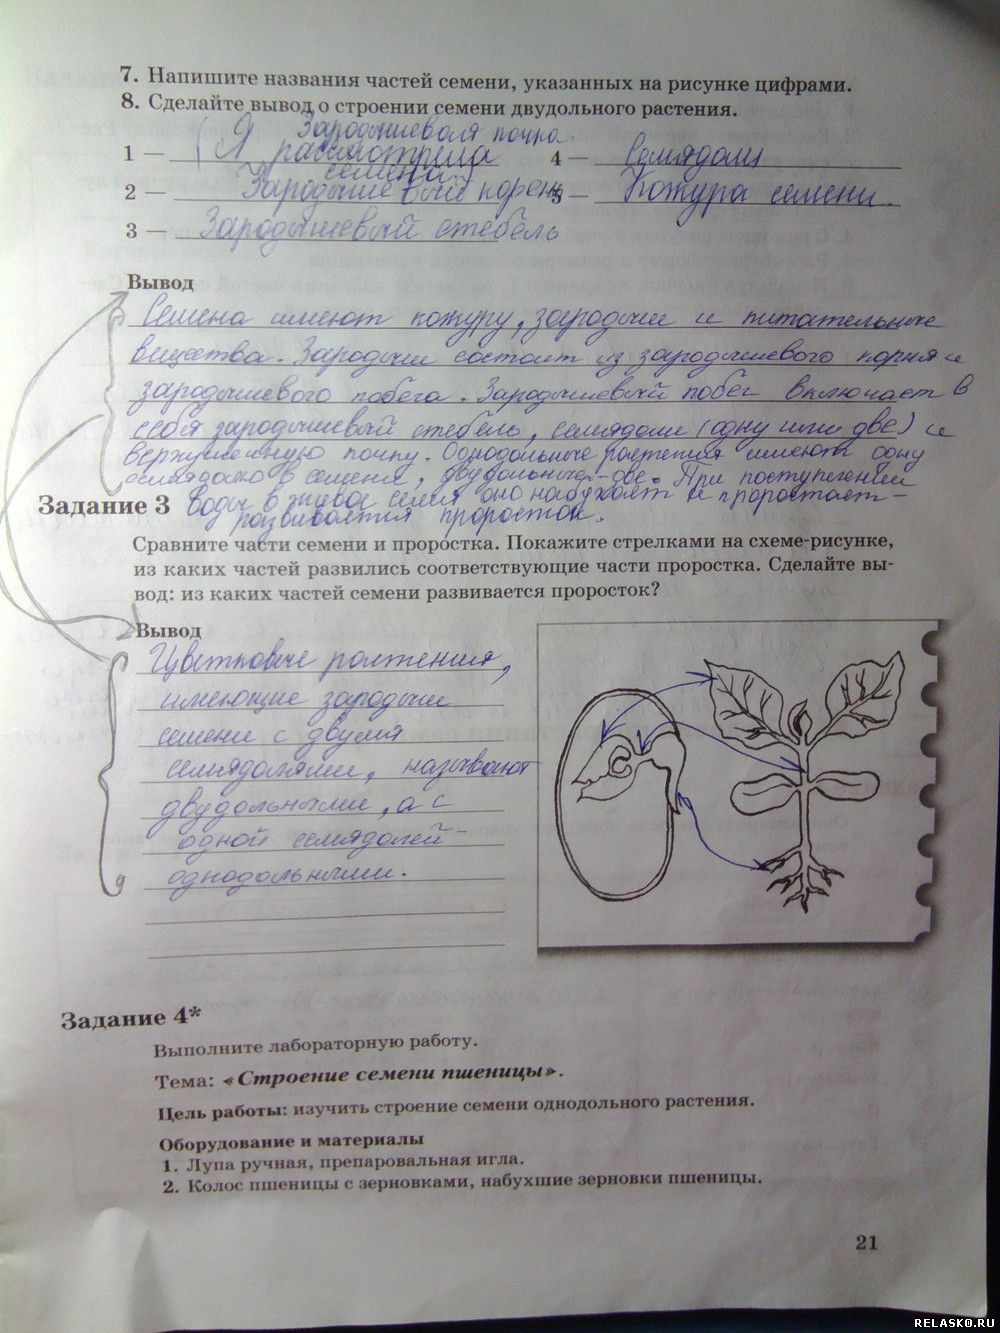 7. Напишите названия частей семени, указанных на рисунке цифрами.
8. Сделайте вывод о строении семени двудольного растения.
Зародышевая почка
1 — (Я рассмотрела
семена)
4 — Семядоли
2 — Зародышевый корень
5 — Кожура семени
3 — Зародышевый стебель
Вывод
Семена имеют кожуру, зародыш и питательные
вещества. Зародыш состоит из зародышевого корня и
зародышевого побега. Зародышевый побег включает в
себя зародышевый стебель, семядоли (одну или две) и
верхушечную почку. Однодольные растения имеют одну
семядолю в семени, двудольные - две. При поступлении
Задание 3 воды в живое семя оно набухает и прорастает -
развивается проросток.
Сравните части семени и проростка. Покажите стрелками на схеме-рисунке,
из каких частей развились соответствующие части проростка. Сделайте вы-
вод: из каких частей семени развивается проросток?
Вывод
Цветковые растения,
имеющие зародыш
семени с двумя
семядолями, называют
двудольными, а с
одной семядолей -
однодольными.
Задание 4*
Выполните лабораторную работу.
Тема: «Строение семени пшеницы».
Цель работы: изучить строение семени однодольного растения.
Оборудование и материалы
1. Лупа ручная, препаровальная игла.
2. Колос пшеницы с зерновками, набухшие зерновки пшеницы.
21
RELASKO.RU